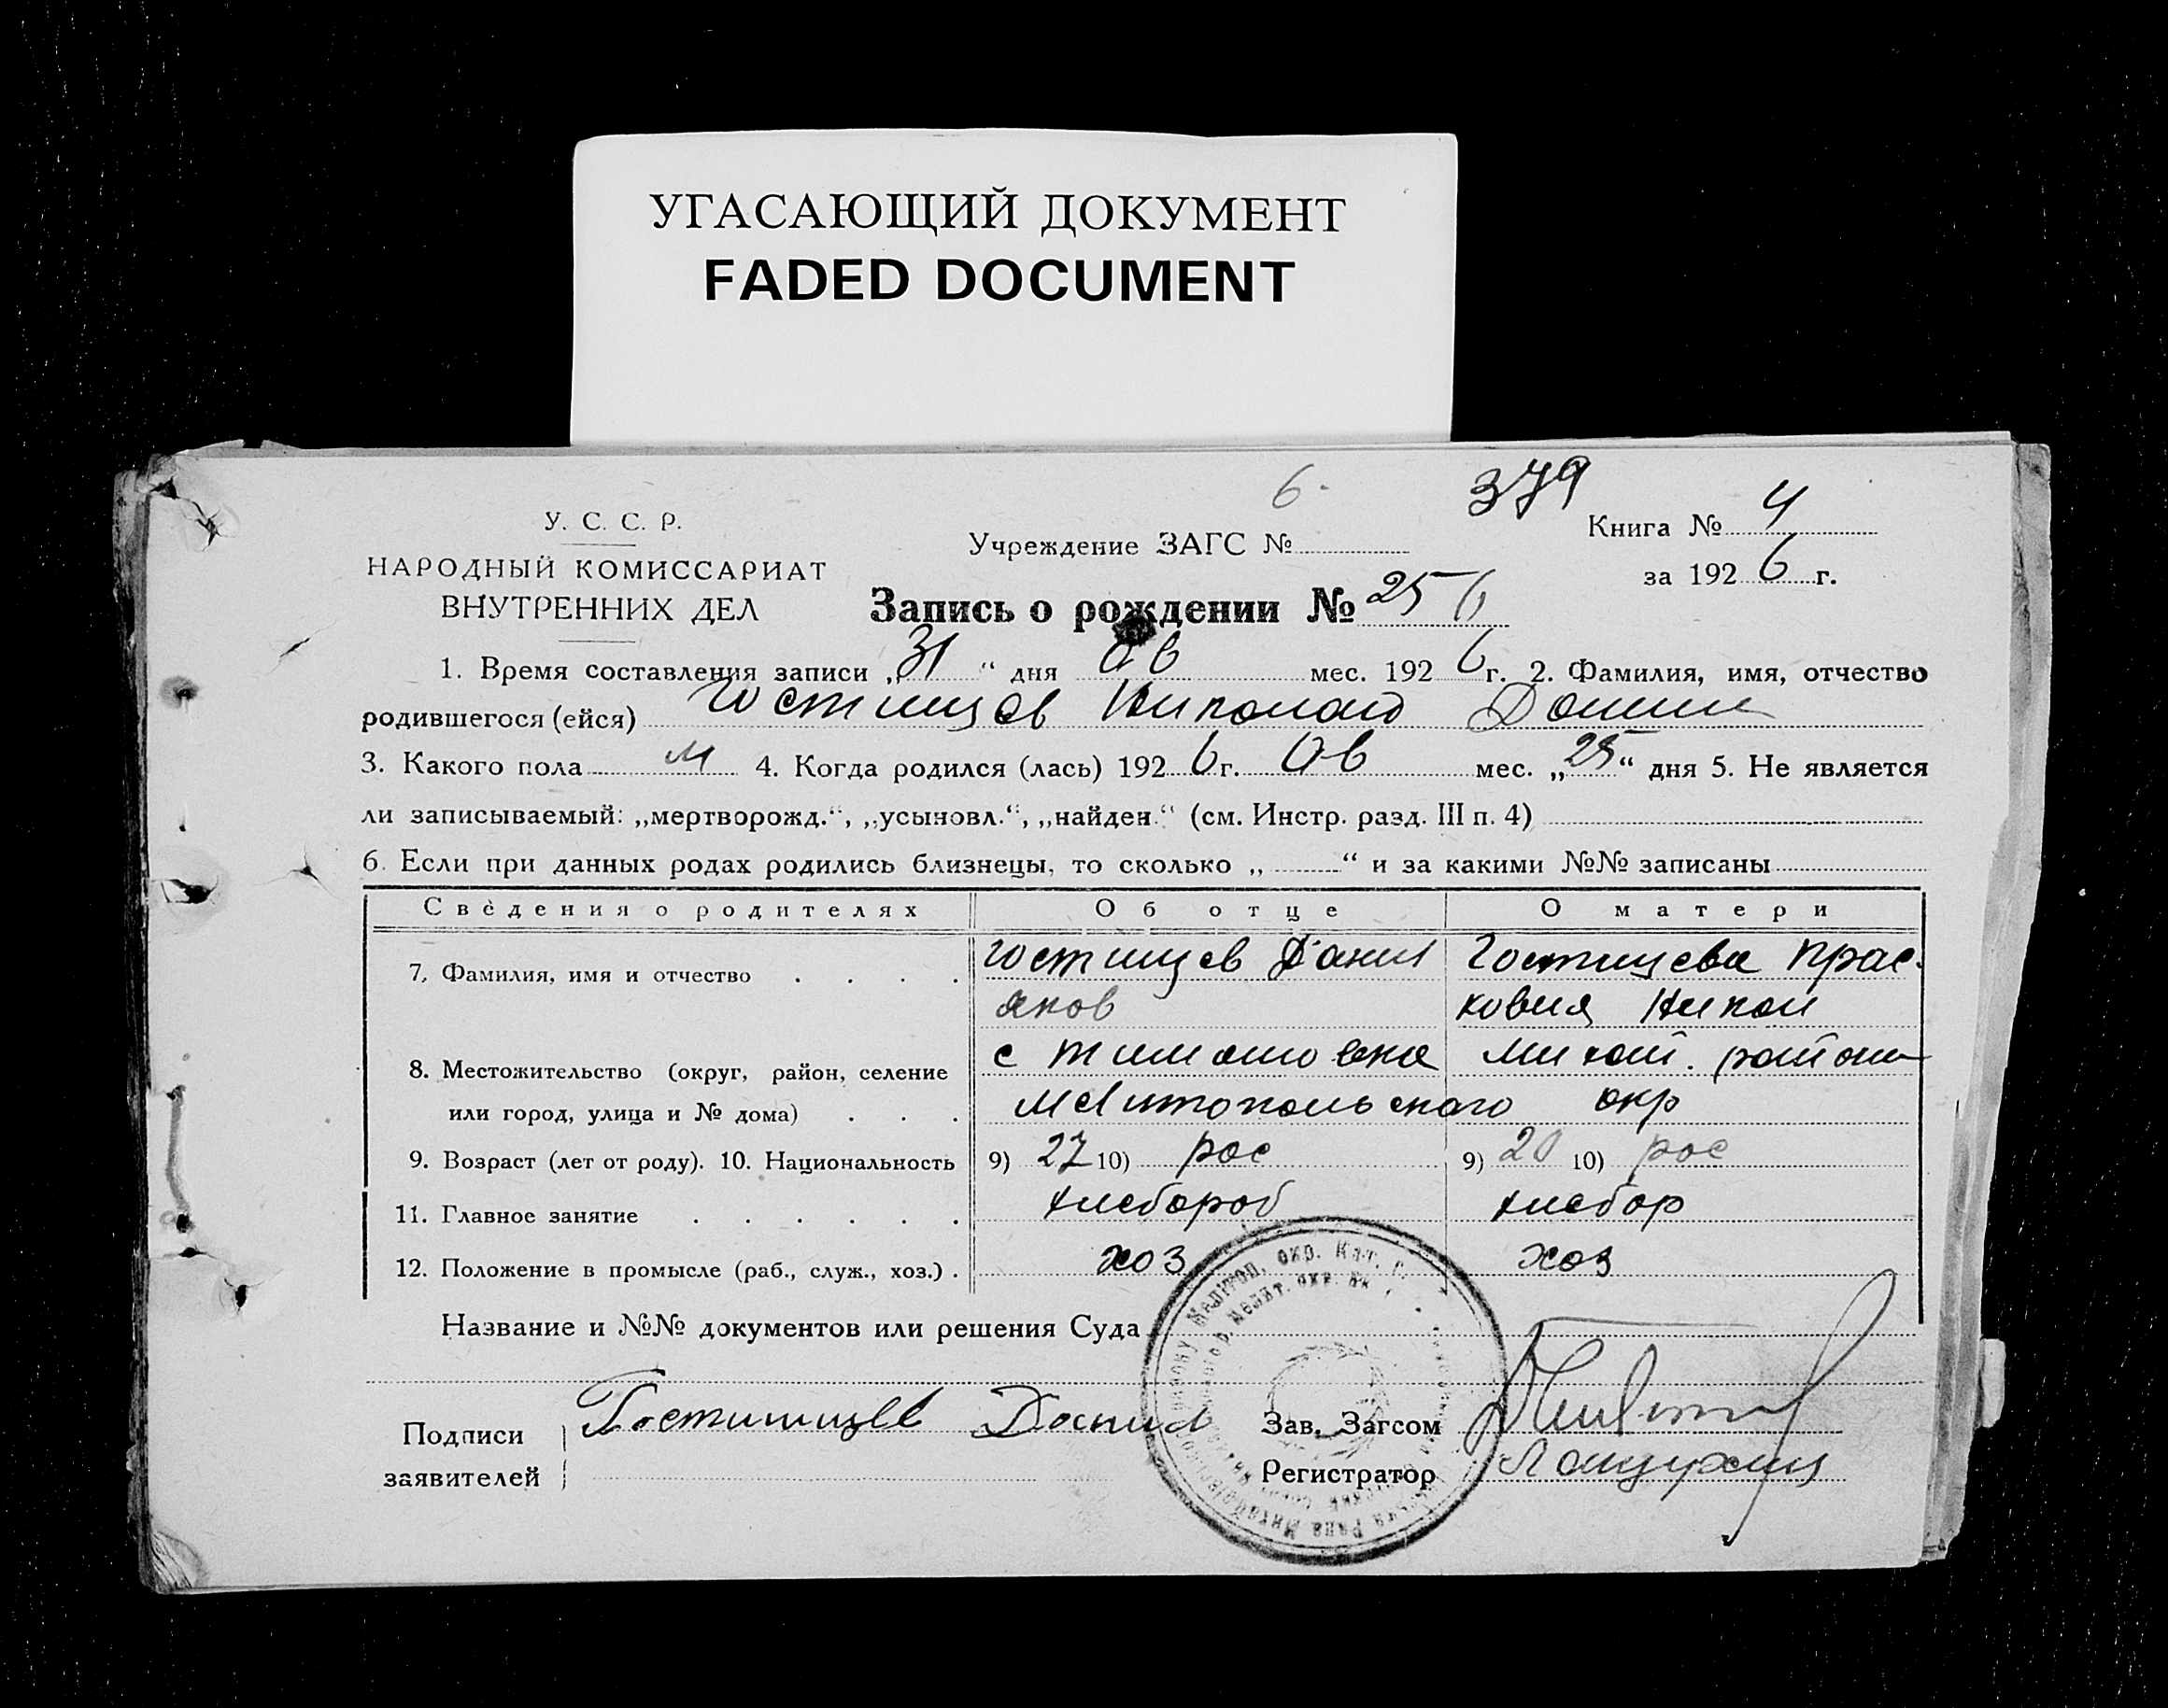 УГАСАЮЩИЙ ДОКУМЕНТ
FADED DOCUMENT
6. 379
У. С. С. Р.
НАРОДНЫЙ КОМИССАРИАТ
ВНУТРЕННИХ ДЕЛ
Учреждение ЗАГС №
Книга № 4
за 1926 г.
Запись о рождении № 256
1. Время составления записи „31“ дня ав мес. 1926 г. 2. Фамилия, имя, отчество
родившегося (ейся) Гостищев Николай Данил
3. Какого пола м 4. Когда родился (лась) 1926 г. Ав мес. „25“ дня 5. Не является
ли записываемый: „мертворожд.“, „усыновл.“, „найден.“ (см. Инстр. разд. III п. 4)
6. Если при данных родах родились близнецы, то сколько „ “ и за какими №№ записаны
Сведения о родителях Об отце О матери
7. Фамилия, имя и отчество Гостищев Данил Гостищева Прас-
яков ковия Никол
8. Местожительство (округ, район, селение с Тимошовка Михай. район
или город, улица и № дома) Мелитопольского окр
9. Возраст (лет от роду). 10. Национальность 9) 27 10) рос 9) 20 10) рос
11. Главное занятие хлебороб хлебор
12. Положение в промысле (раб., служ., хоз.) хоз хоз
Название и №№ документов или решения Суда
Подписи заявителей Гостищев Данил Зав. Загсом
Регистратор